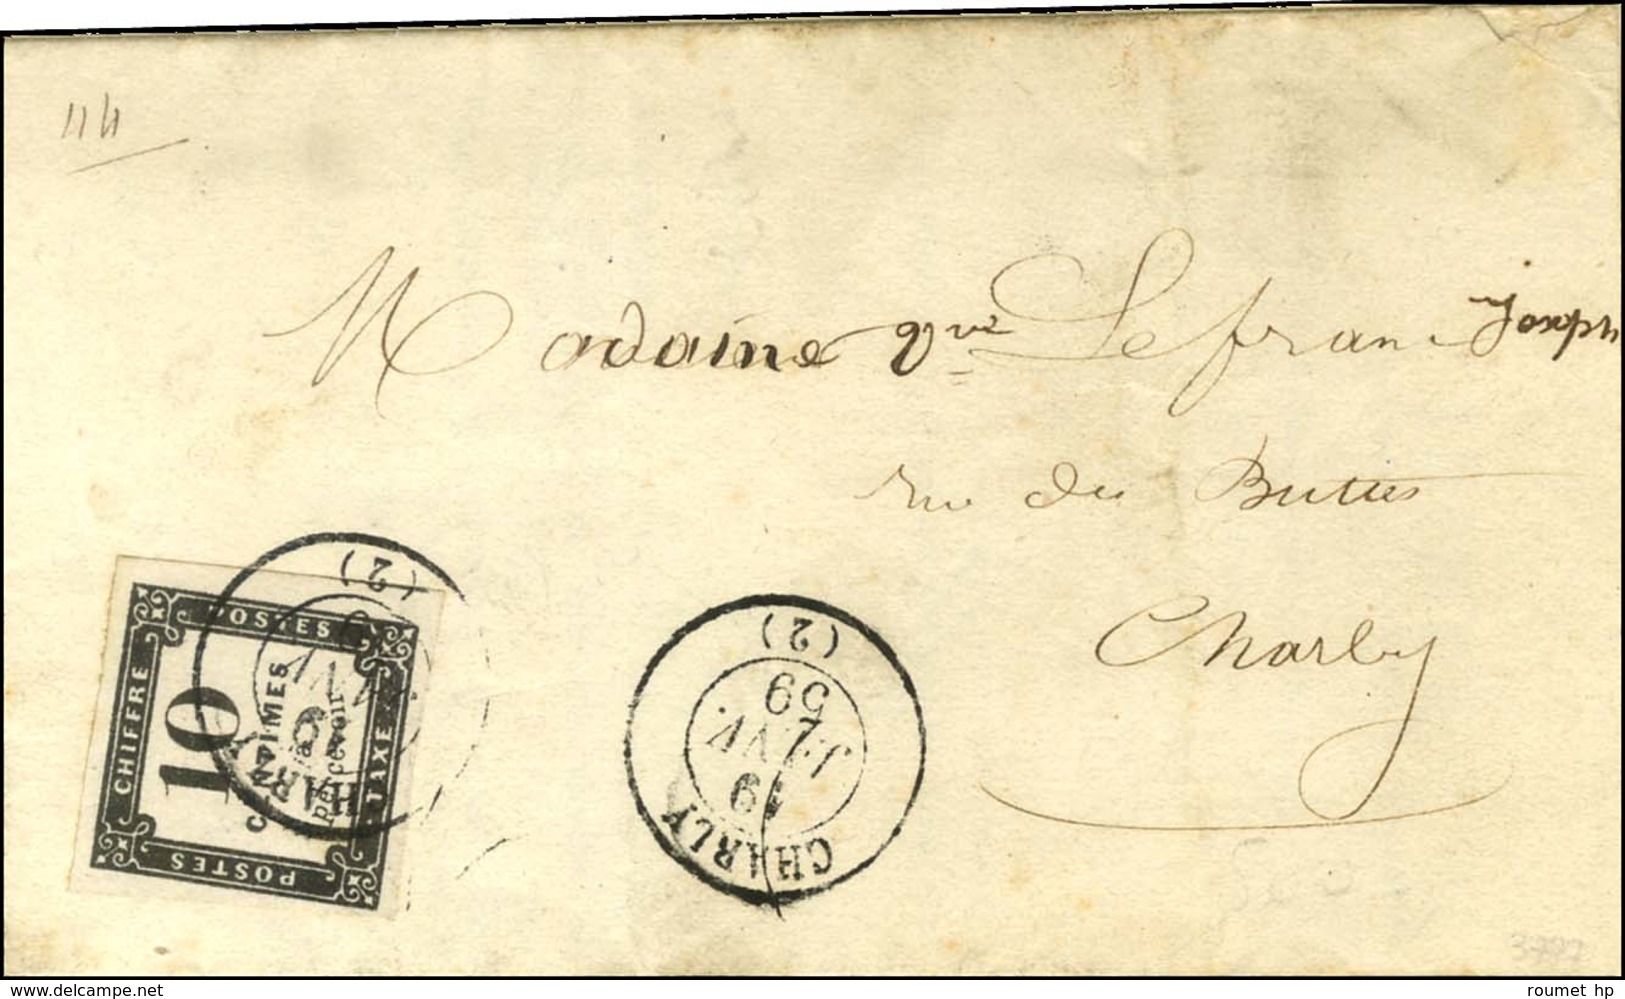 114
Madaine Vve Lefranc Joseph
rue des Buttes
Charly
POSTES
CHIFFRE
10
CENTIMES
à
percevoir
TAXE
POSTES
(2)
CHARLY
19
JANV.
59
(2)
3787
www.delcampe.net
roumet hp